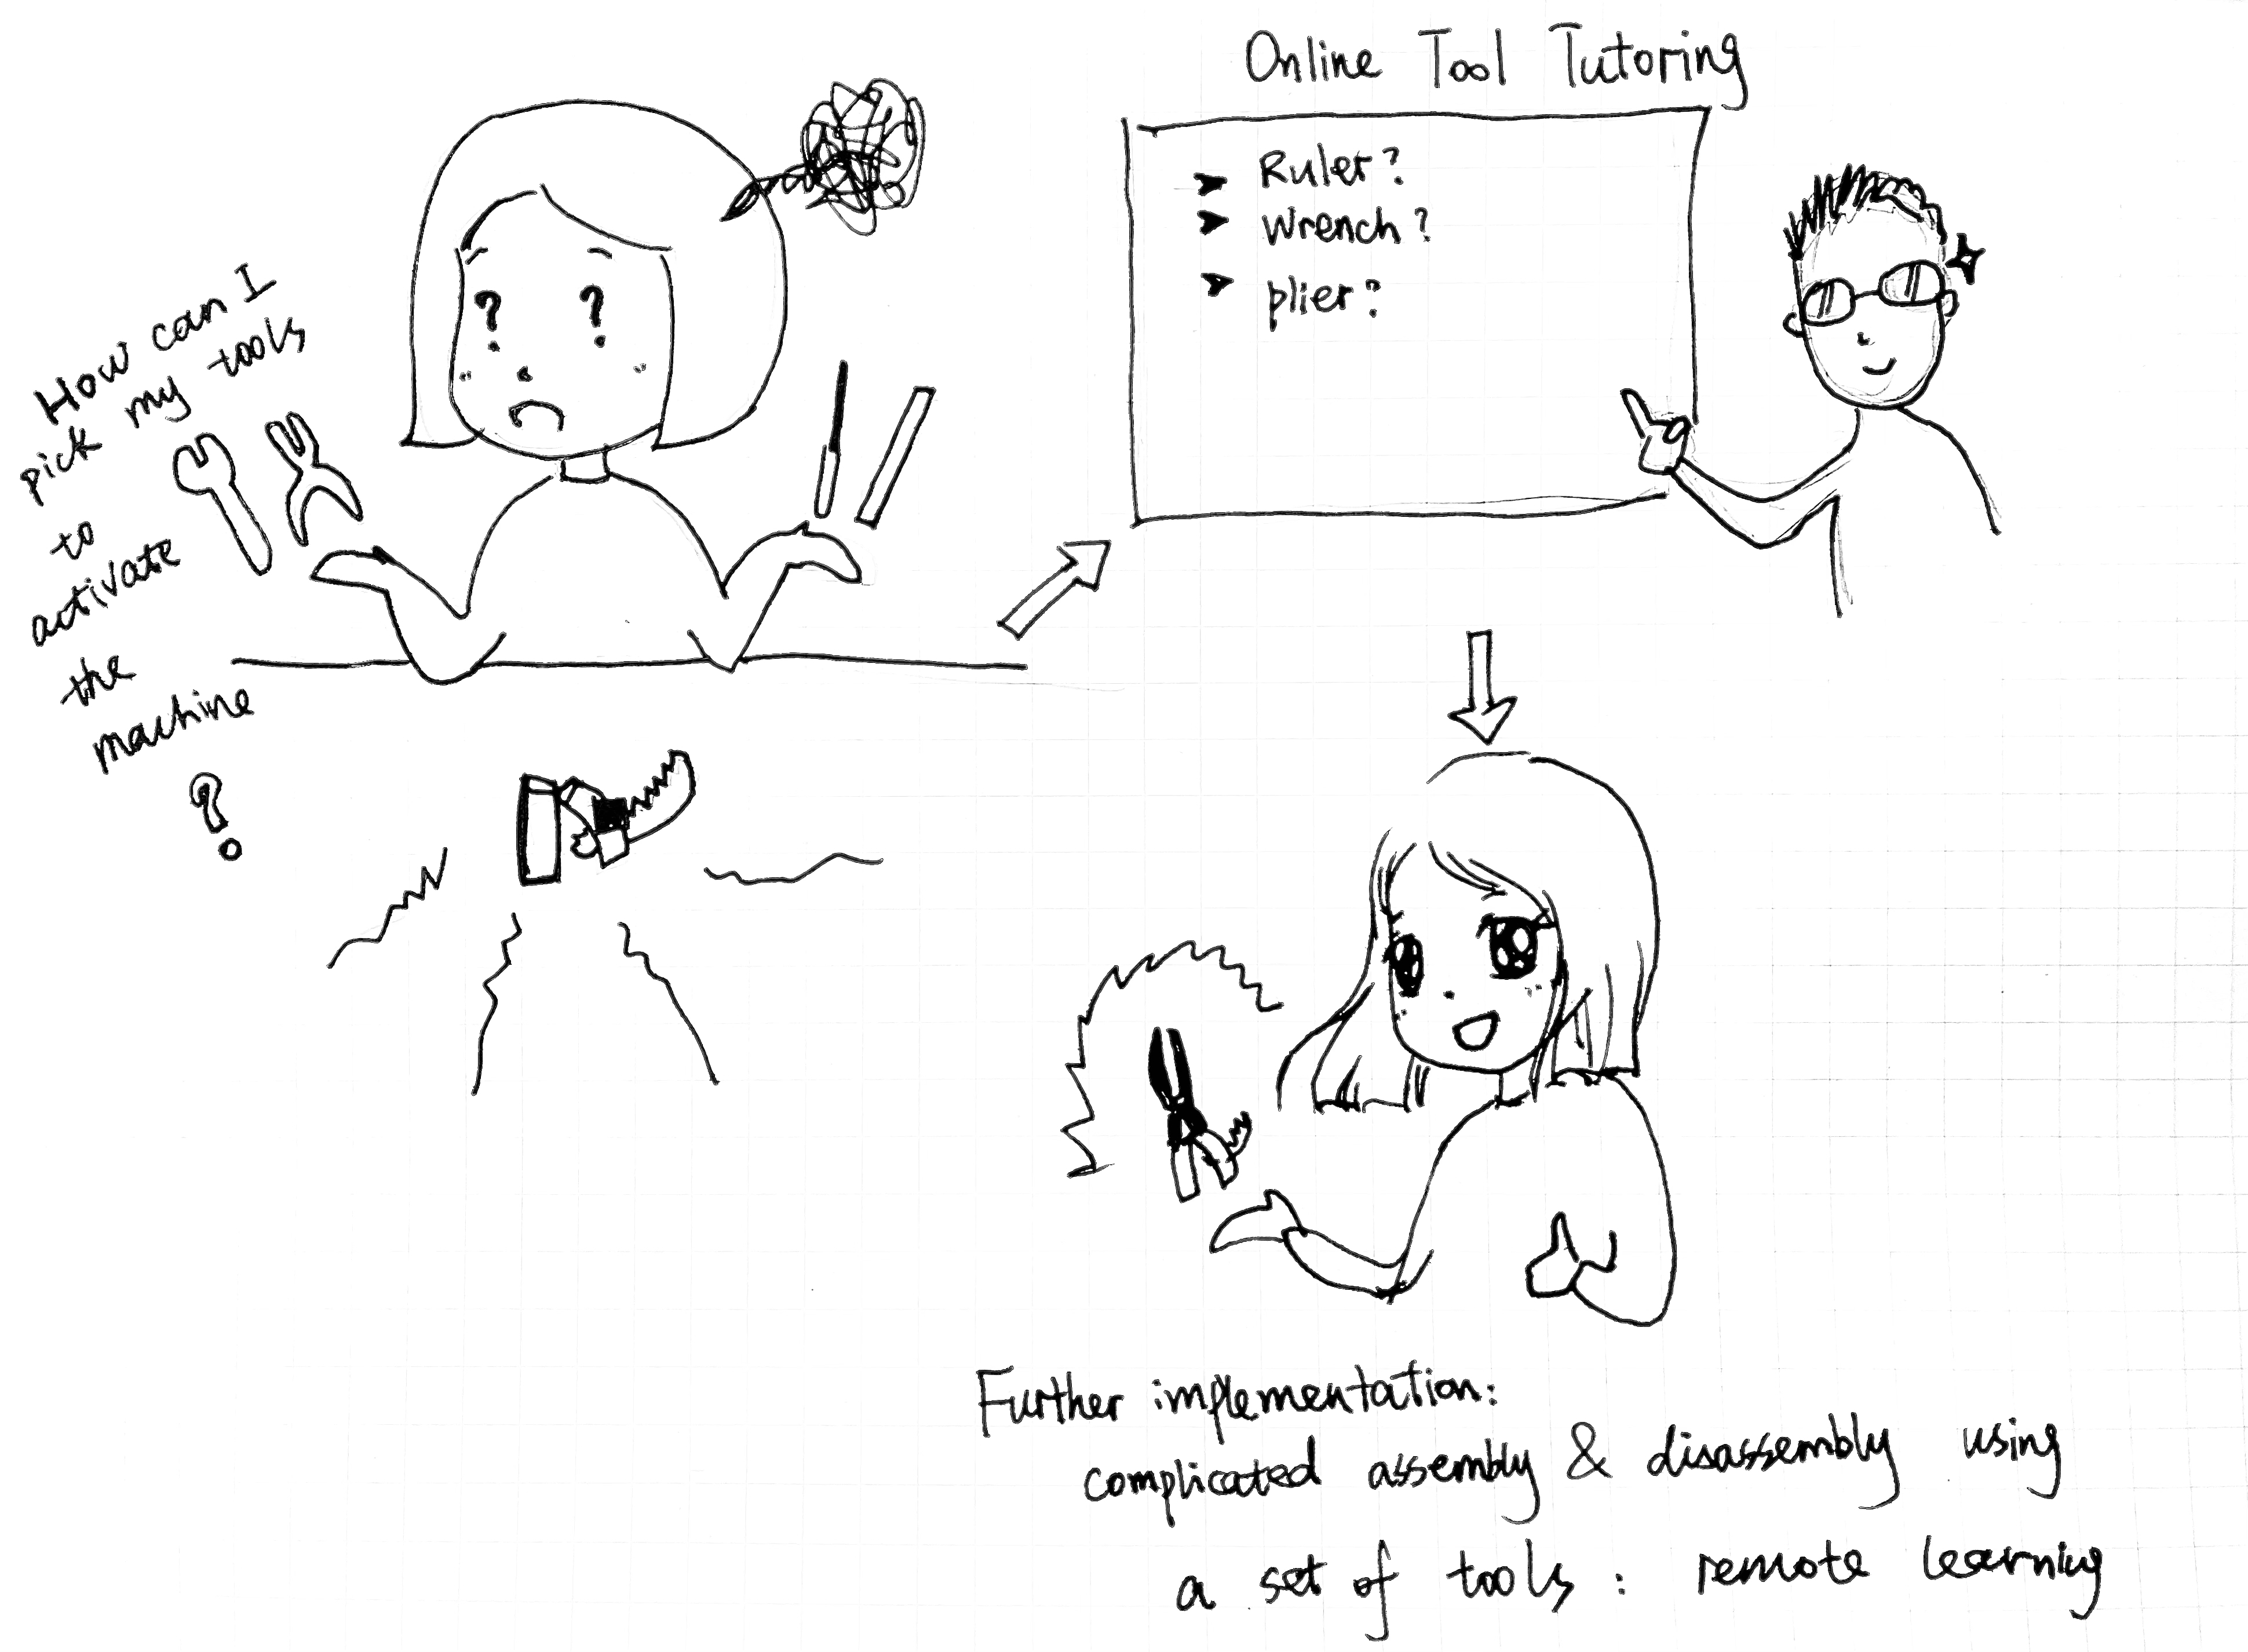 How can I
pick my tools
to
activate
the
machine
?
Online Tool Tutoring
➤ Ruler?
➤ Wrench?
➤ plier?
? ?
Further implementation:
complicated assembly & disassembly using
a set of tools : remote learning